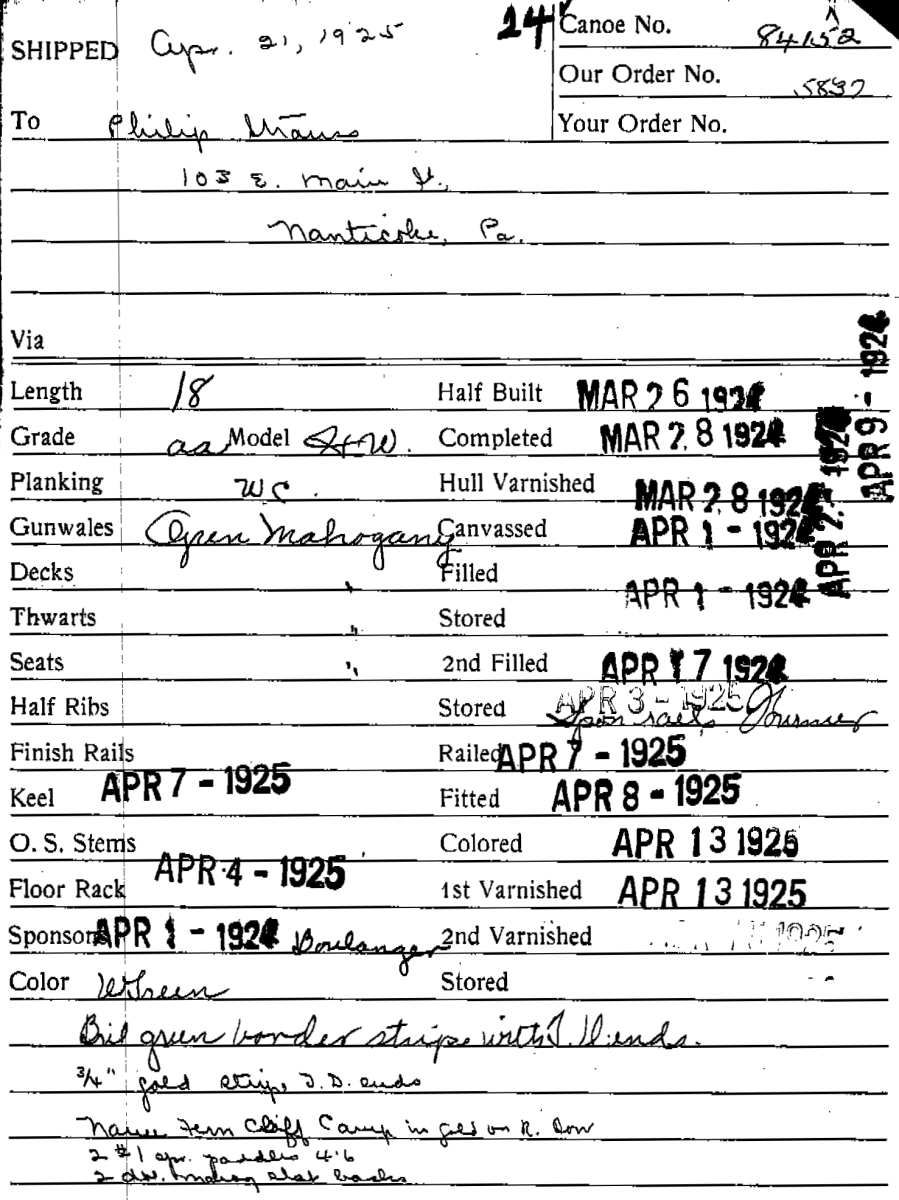 SHIPPED Apr. 21, 1925
24
Canoe No. 84152
Our Order No. 5837
To Philip
Your Order No.
103 E. Main St.,
Nanticoke, Pa.
Via
Length 18 Half Built MAR 26 1924
Grade aa Model H W. Completed MAR 28 1924
Planking WC. Hull Varnished MAR 28 1924
Gunwales Open Mahogany Canvassed APR 1 - 1924
Decks " Filled APR 1 - 1924
Thwarts " Stored
Seats " 2nd Filled APR 17 1924
Half Ribs Stored APR 3 - 1925 Spon rails
Finish Rails Railed APR 7 - 1925
Keel APR 7 - 1925 Fitted APR 8 - 1925
O. S. Stems Colored APR 13 1925
Floor Rack APR 4 - 1925 1st Varnished APR 13 1925
Sponsons APR 1 - 1924 Boulanger 2nd Varnished 1925
Color Green Stored
APR 2 1924
APR 9 - 1924
Bril green border stripe with ends.
3/4" gold stripe D. D. ends
Name Fern Cliff Camp in gold on R. Bow
2 #1 spr. paddles 4'6
2 slat backs